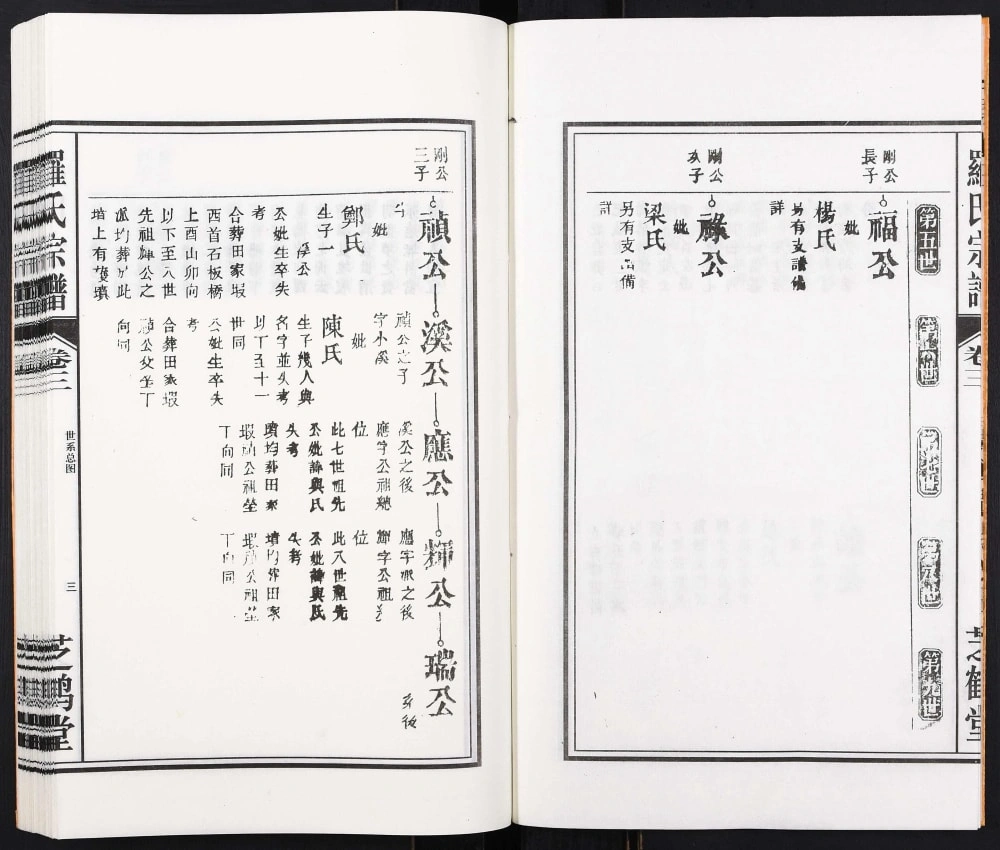 羅氏宗譜
卷三
芝鶴堂
第五世
第六世
第七世
第八世
第九世
剛公
長子
福公
妣
楊氏
另有支譜備
詳
剛公
次子
祿公
妣
梁氏
另有支 備
詳
剛公
三子
禎公
妣
鄭氏
生子一
溪公
公妣生卒失
考
合葬田家塅
西首石板橋
上酉山卯向
以下至八世
先祖輝公之
派均葬於此
墳上有護墳
溪公
禎公之子
字小溪
妣
陳氏
生子幾人與
名字並失考
以下至十一
世同
公妣生卒失
考
合葬田家塅
禎公父塋丁
向同
應公
溪公之後
應字公祖總
位
此七世祖先
公妣諱與氏
失考
墳均葬田家
塅禎公祖塋
丁向同
輝公
應字派之後
輝字公祖
位
此八世祖先
公妣諱與氏
失考
墳均葬田家
塅禎公祖塋
丁向同
瑞公
羅氏宗譜
卷三
世系总图
三
芝鹤堂